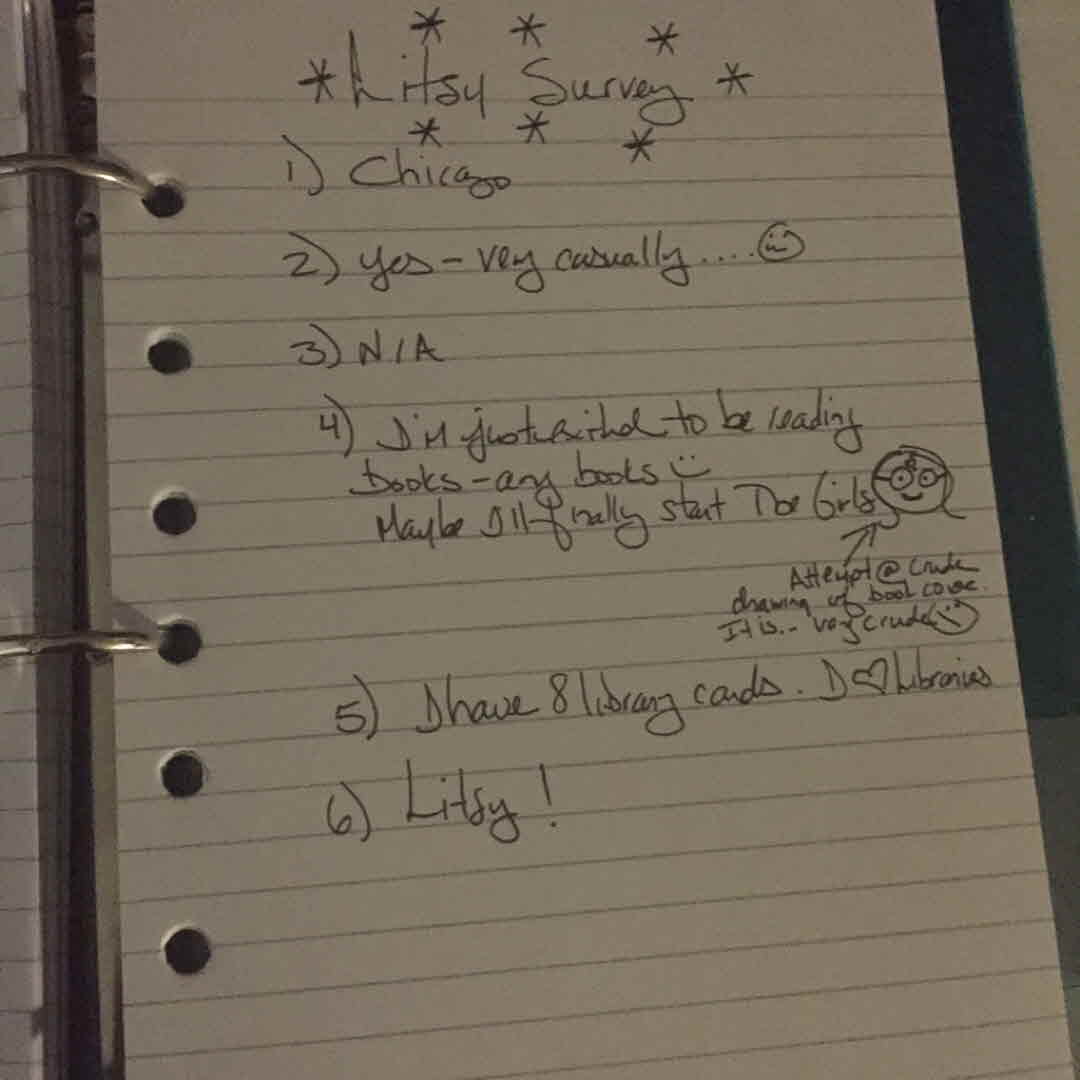 * * *
* Litsy Survey *
* * *
1) Chicago
2) yes - very casually....
3) N/A
4) I'm just excited to be reading
books - any books
Maybe I'll finally start The Girls
Attempt @ crude
drawing of book cover.
It is.. very crude
5) I have 8 library cards. I ♡ Libraries
6) Litsy!